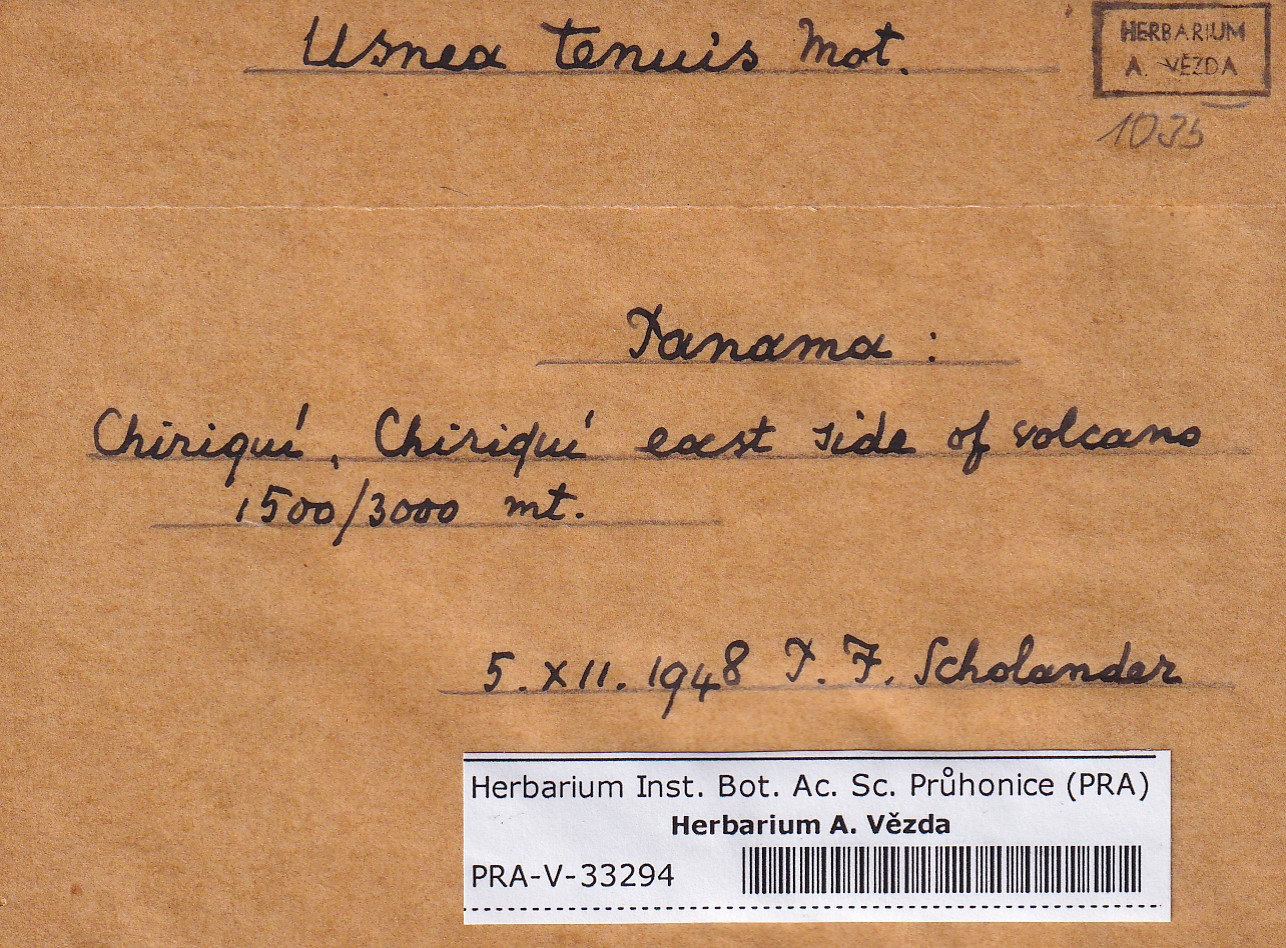 Usnea tenuis Mot.
HERBARIUM
A. VĚZDA
Panama :
Chiriquí, Chiriquí east side of volcano
1500/3000 mt.
5. XII. 1948 P. F. Scholander
Herbarium Inst. Bot. Ac. Sc. Průhonice (PRA)
Herbarium A. Vězda
PRA-V-33294